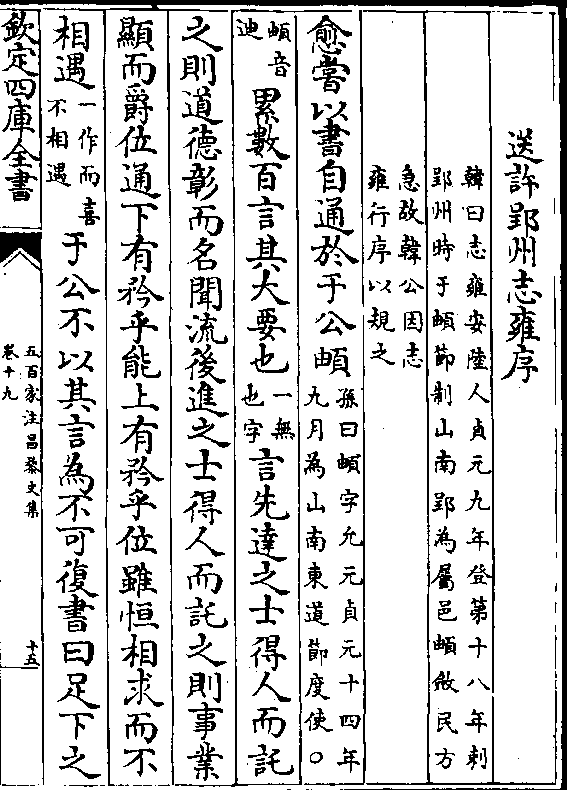 送許郢州志雍序
韓曰志雍安陸人貞元九年登第十八年刺
郢州時于頔節制山南郢為屬邑頔斂民方
急故韓公因志
雍行序以規之
愈嘗以書自通於于公頔
孫曰頔字允元貞元十四年
九月為山南東道節度使○
頔音
迪
累數百言其大要
也
一無
也字
言先達之士得人而託
之則道德彰而名聞流後進之士得人而託之則事業
顯而爵位通下有矜乎能上有矜乎位雖恒相求而不
相遇
一作而喜
不相遇
于公不以其言為不可復書曰足下之
欽定四庫全書
五百家注昌黎文集
卷十九
十五